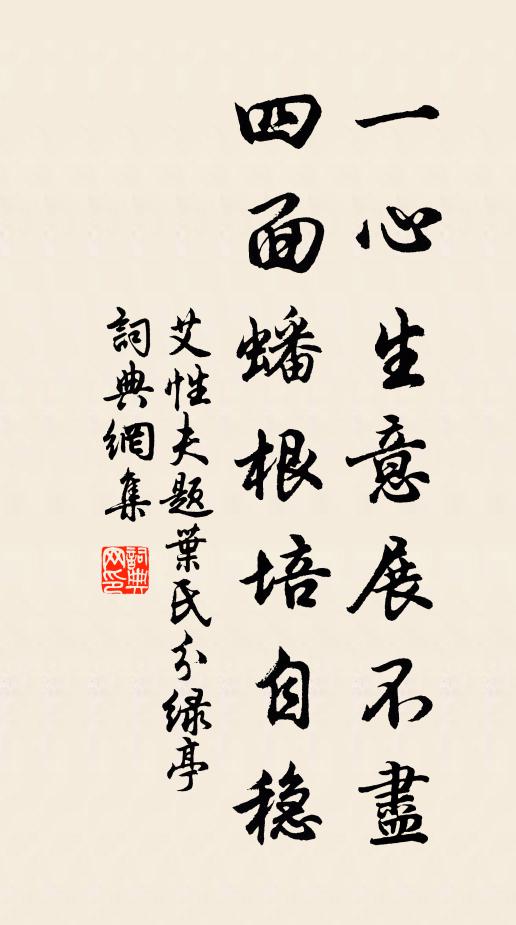 一心生意展不盡
四面蟠根培自穏
艾性夫題葉氏分緑亭
詞典網集
詞典網印